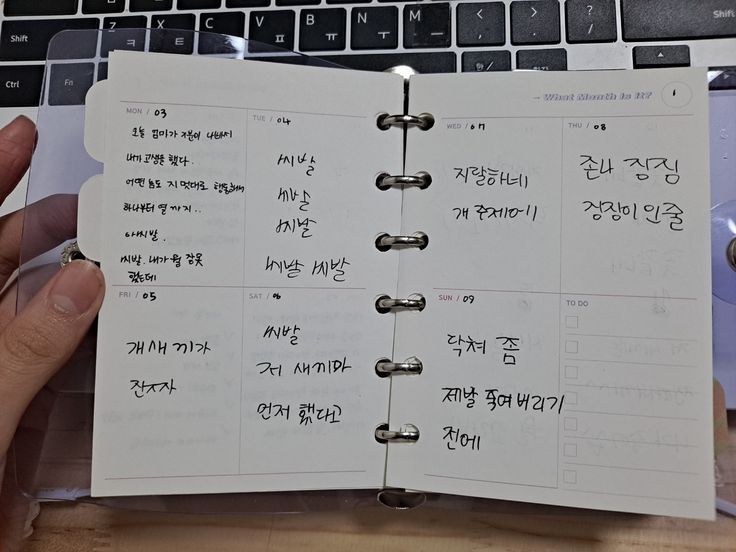 Shift
Z
X
C
V
B
N
M
<
>
?
Shift
ㅋ
ㅊ
ㅍ
ㅠ
ㅜ
ㅡ
,
.
/
Ctrl
Fn
한/영
~ What Month is it?
1
MON / 03
오늘 엄마가 기분이 나빠서
내가 고생을 했다.
어떤 놈도 지 멋대로 행동해서
하나부터 열까지..
아씨발.
씨발. 내가 뭘 잘못
했는데
TUE / 04
씨발
씨발
씨발
씨발 씨발
WED / 07
지랄하네
개 주제에
THU / 08
존나 징징
징징이 인줄
FRI / 05
개새끼가
잔다
SAT / 06
씨발
저 새끼가
먼저 했다고
SUN / 09
닥쳐 좀
제발 죽여버리기
전에
TO DO